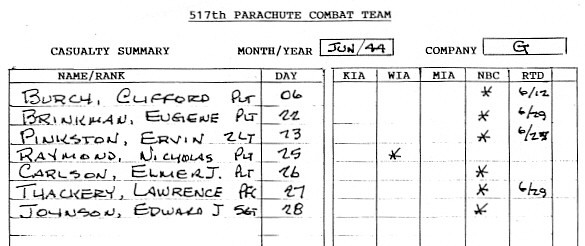 517th PARACHUTE COMBAT TEAM
CASUALTY SUMMARY MONTH/YEAR JUN/44 COMPANY G
NAME/RANK DAY KIA WIA MIA NBC RTD
BURCH, CLIFFORD PVT 06 * 6/12
BRINKMAN, EUGENE PVT 22 * 6/29
PINKSTON, ERVIN 2LT 23 * 6/25
RAYMOND, NICHOLAS PVT 25 *
CARLSON, ELMER J. PVT 26 *
THACKERY, LAWRENCE PFC 27 * 6/29
JOHNSON, EDWARD J SGT 28 *